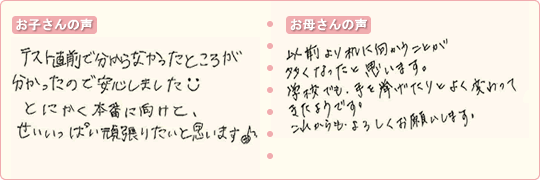 お子さんの声
テスト直前で分からなかったところが
分かったので安心しました
とにかく本番に向けて、
せいいっぱい頑張りたいと思います♪
お母さんの声
以前より机に向かうことが
多くなったと思います。
学校でも、手を挙げたりとよく変わって
きたようです。
これからも、よろしくお願いします。